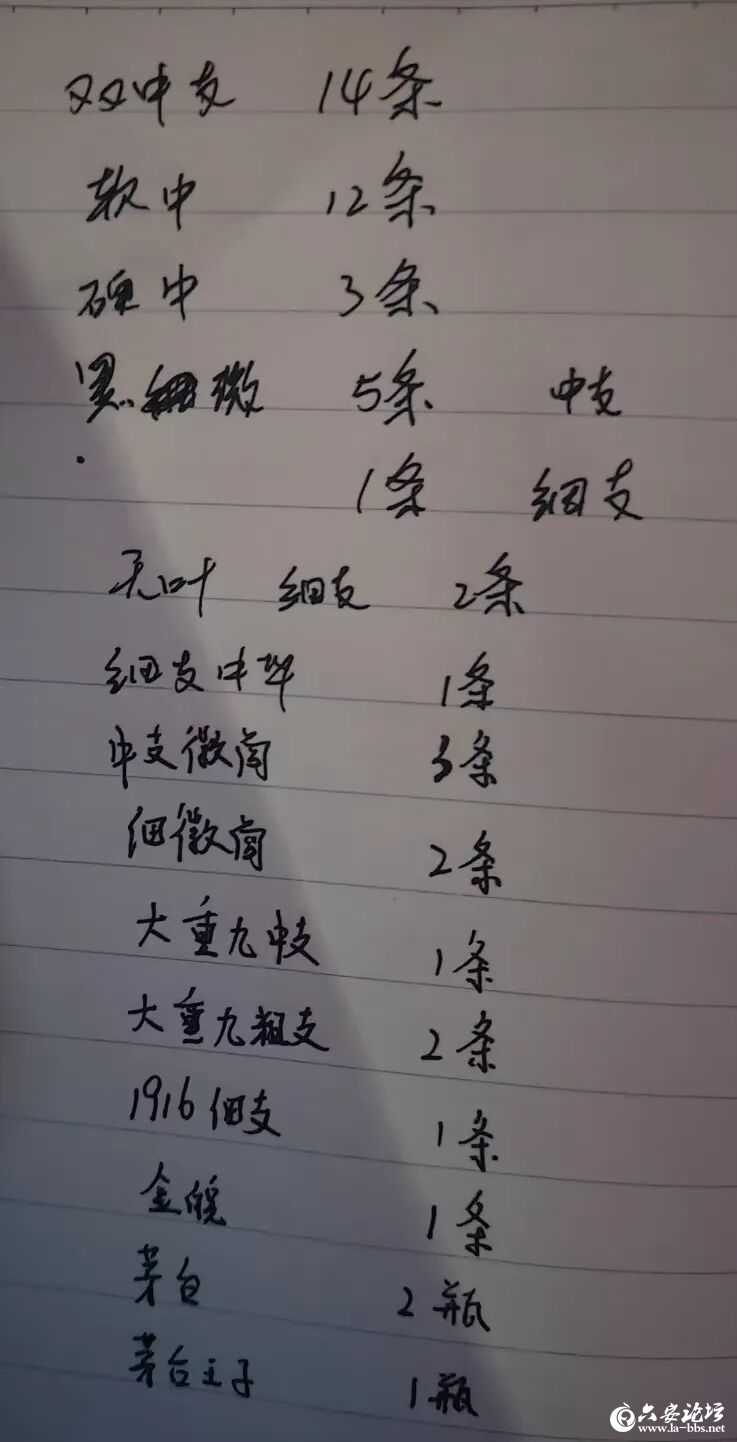 双中支 14条
软中 12条
硬中 3条
黑徽 5条 中支
1条 细支
天叶 细支 2条
细支中华 1条
中支徽商 3条
细徽商 2条
大重九中支 1条
大重九粗支 2条
1916细支 1条
金皖 1条
茅台 2瓶
茅台王子 1瓶
六安论坛
www.la-bbs.net